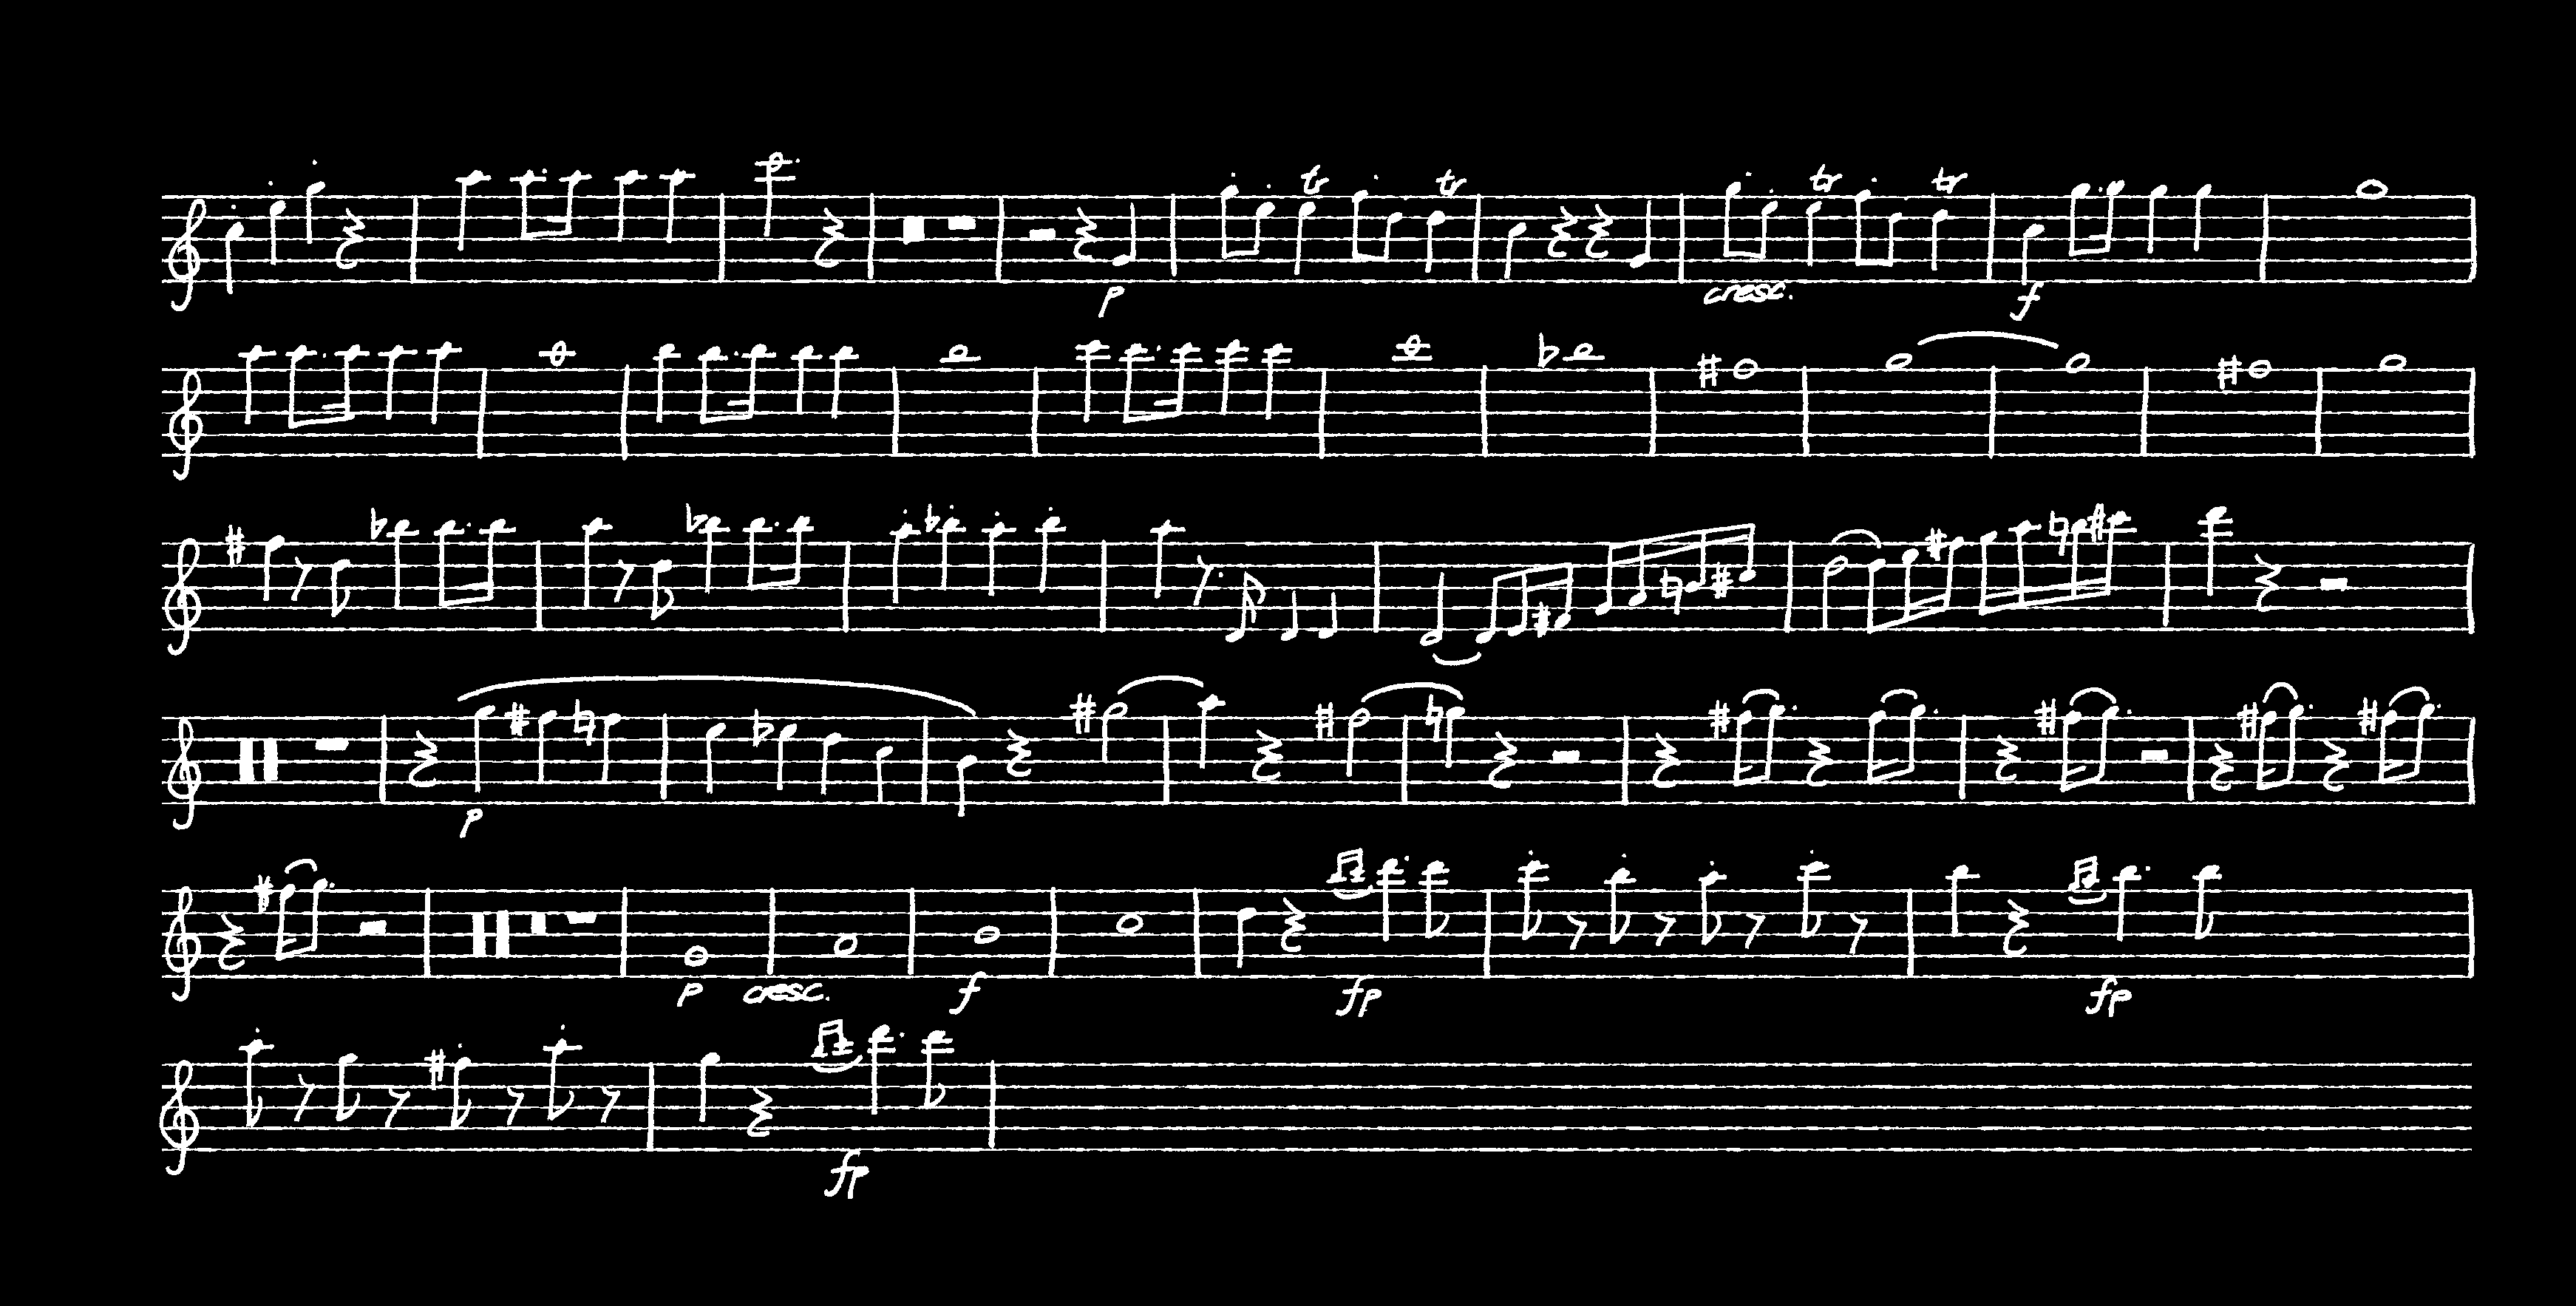 tr tr tr tr
p cresc. f
p
p cresc. f fp fp
fp